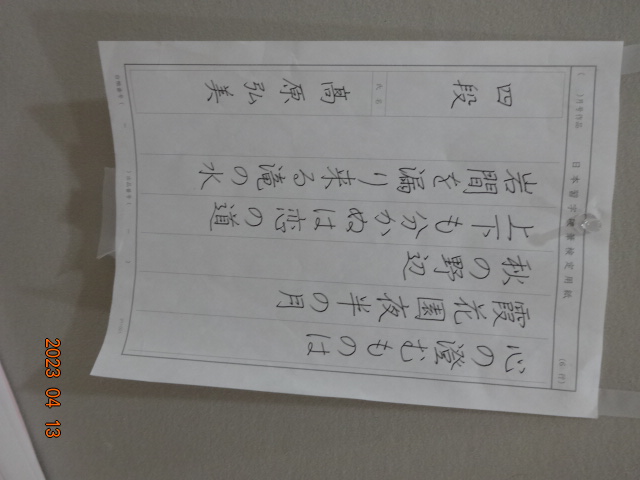 日本習字硬筆検定用紙
心の澄むものは
霞花園夜半の月
秋の野辺
上下も分かぬは恋の道
岩間を漏り来る滝の水
四段
氏名
高原弘美
2023 04 13